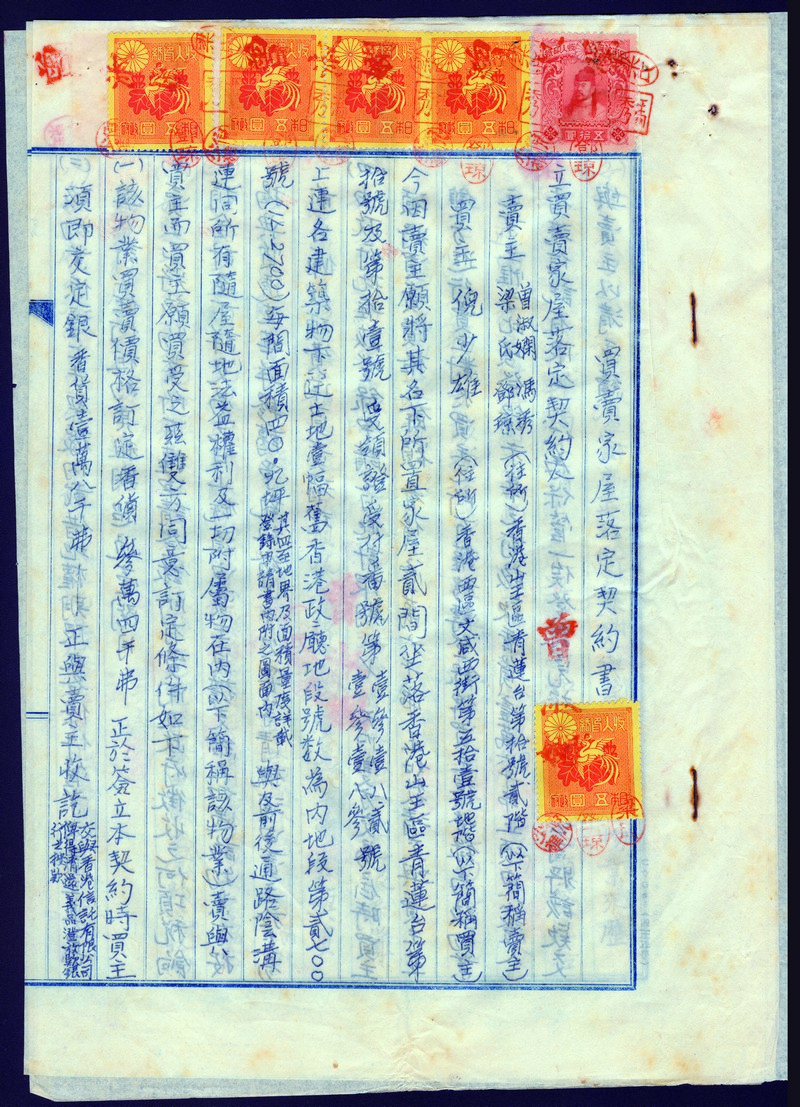 買賣家屋落定契約書
立買賣家屋落定契約
賣主 曾淑嫻 馮秀
梁氏 鄧琼 (住所)香港山王區青蓮台第拾號貳階(以下簡稱賣主)
買主 倪少雄 (住所)香港西區文咸西街第五拾壹號地階(以下簡稱買主)
今因賣主願將其名下所置家屋貳間坐落香港山王區青蓮台第
拾號及第拾壹號 受領證受付番號第 壹參壹八貳 號
壹參壹八參
上連各建築物下連土地壹幅舊香港政廳地段號數為內地段第貳七〇〇
號(I.L.2700)每間面積四〇.九坪 其四至地界及面積量度詳載
登錄申請書內附之圖面內 與及前後通路陰溝
連同所有隨屋隨地法益權利及一切附屬物在內(以下簡稱該物業)賣與
買主而買主願買受之茲雙方同意訂定條件如下
(一)該物業買賣價格訂定香貨參萬四千弗 正於簽立本契約時買主
(二)須即交定銀香貨壹萬八千弗 正與賣主收訖 交與香港信託有限公司
俾得清還義品
行之欵
收入印紙
五圓
五拾圓
曾